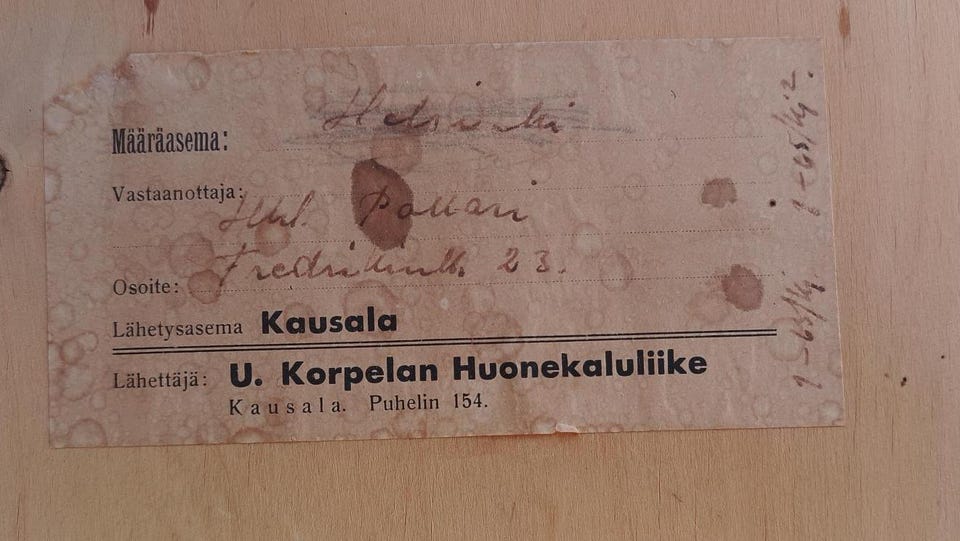 Määräasema: Helsinki
Vastaanottaja:
Pakkari
Fredrikink. 23.
Osoite:
Lähetysasema Kausala
Lähettäjä: U. Korpelan Huonekaluliike
Kausala. Puhelin 154.